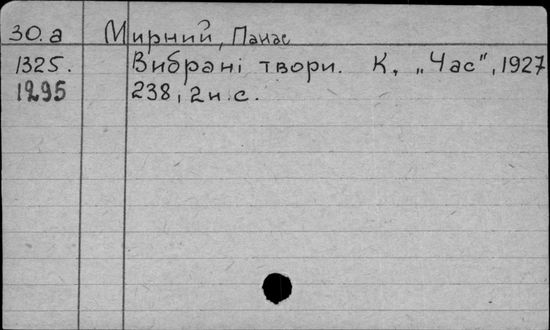 30.а Мирний, Панас
1325. Вибрані твори. К, „Час", 1927
1295 238, 2 н.с.